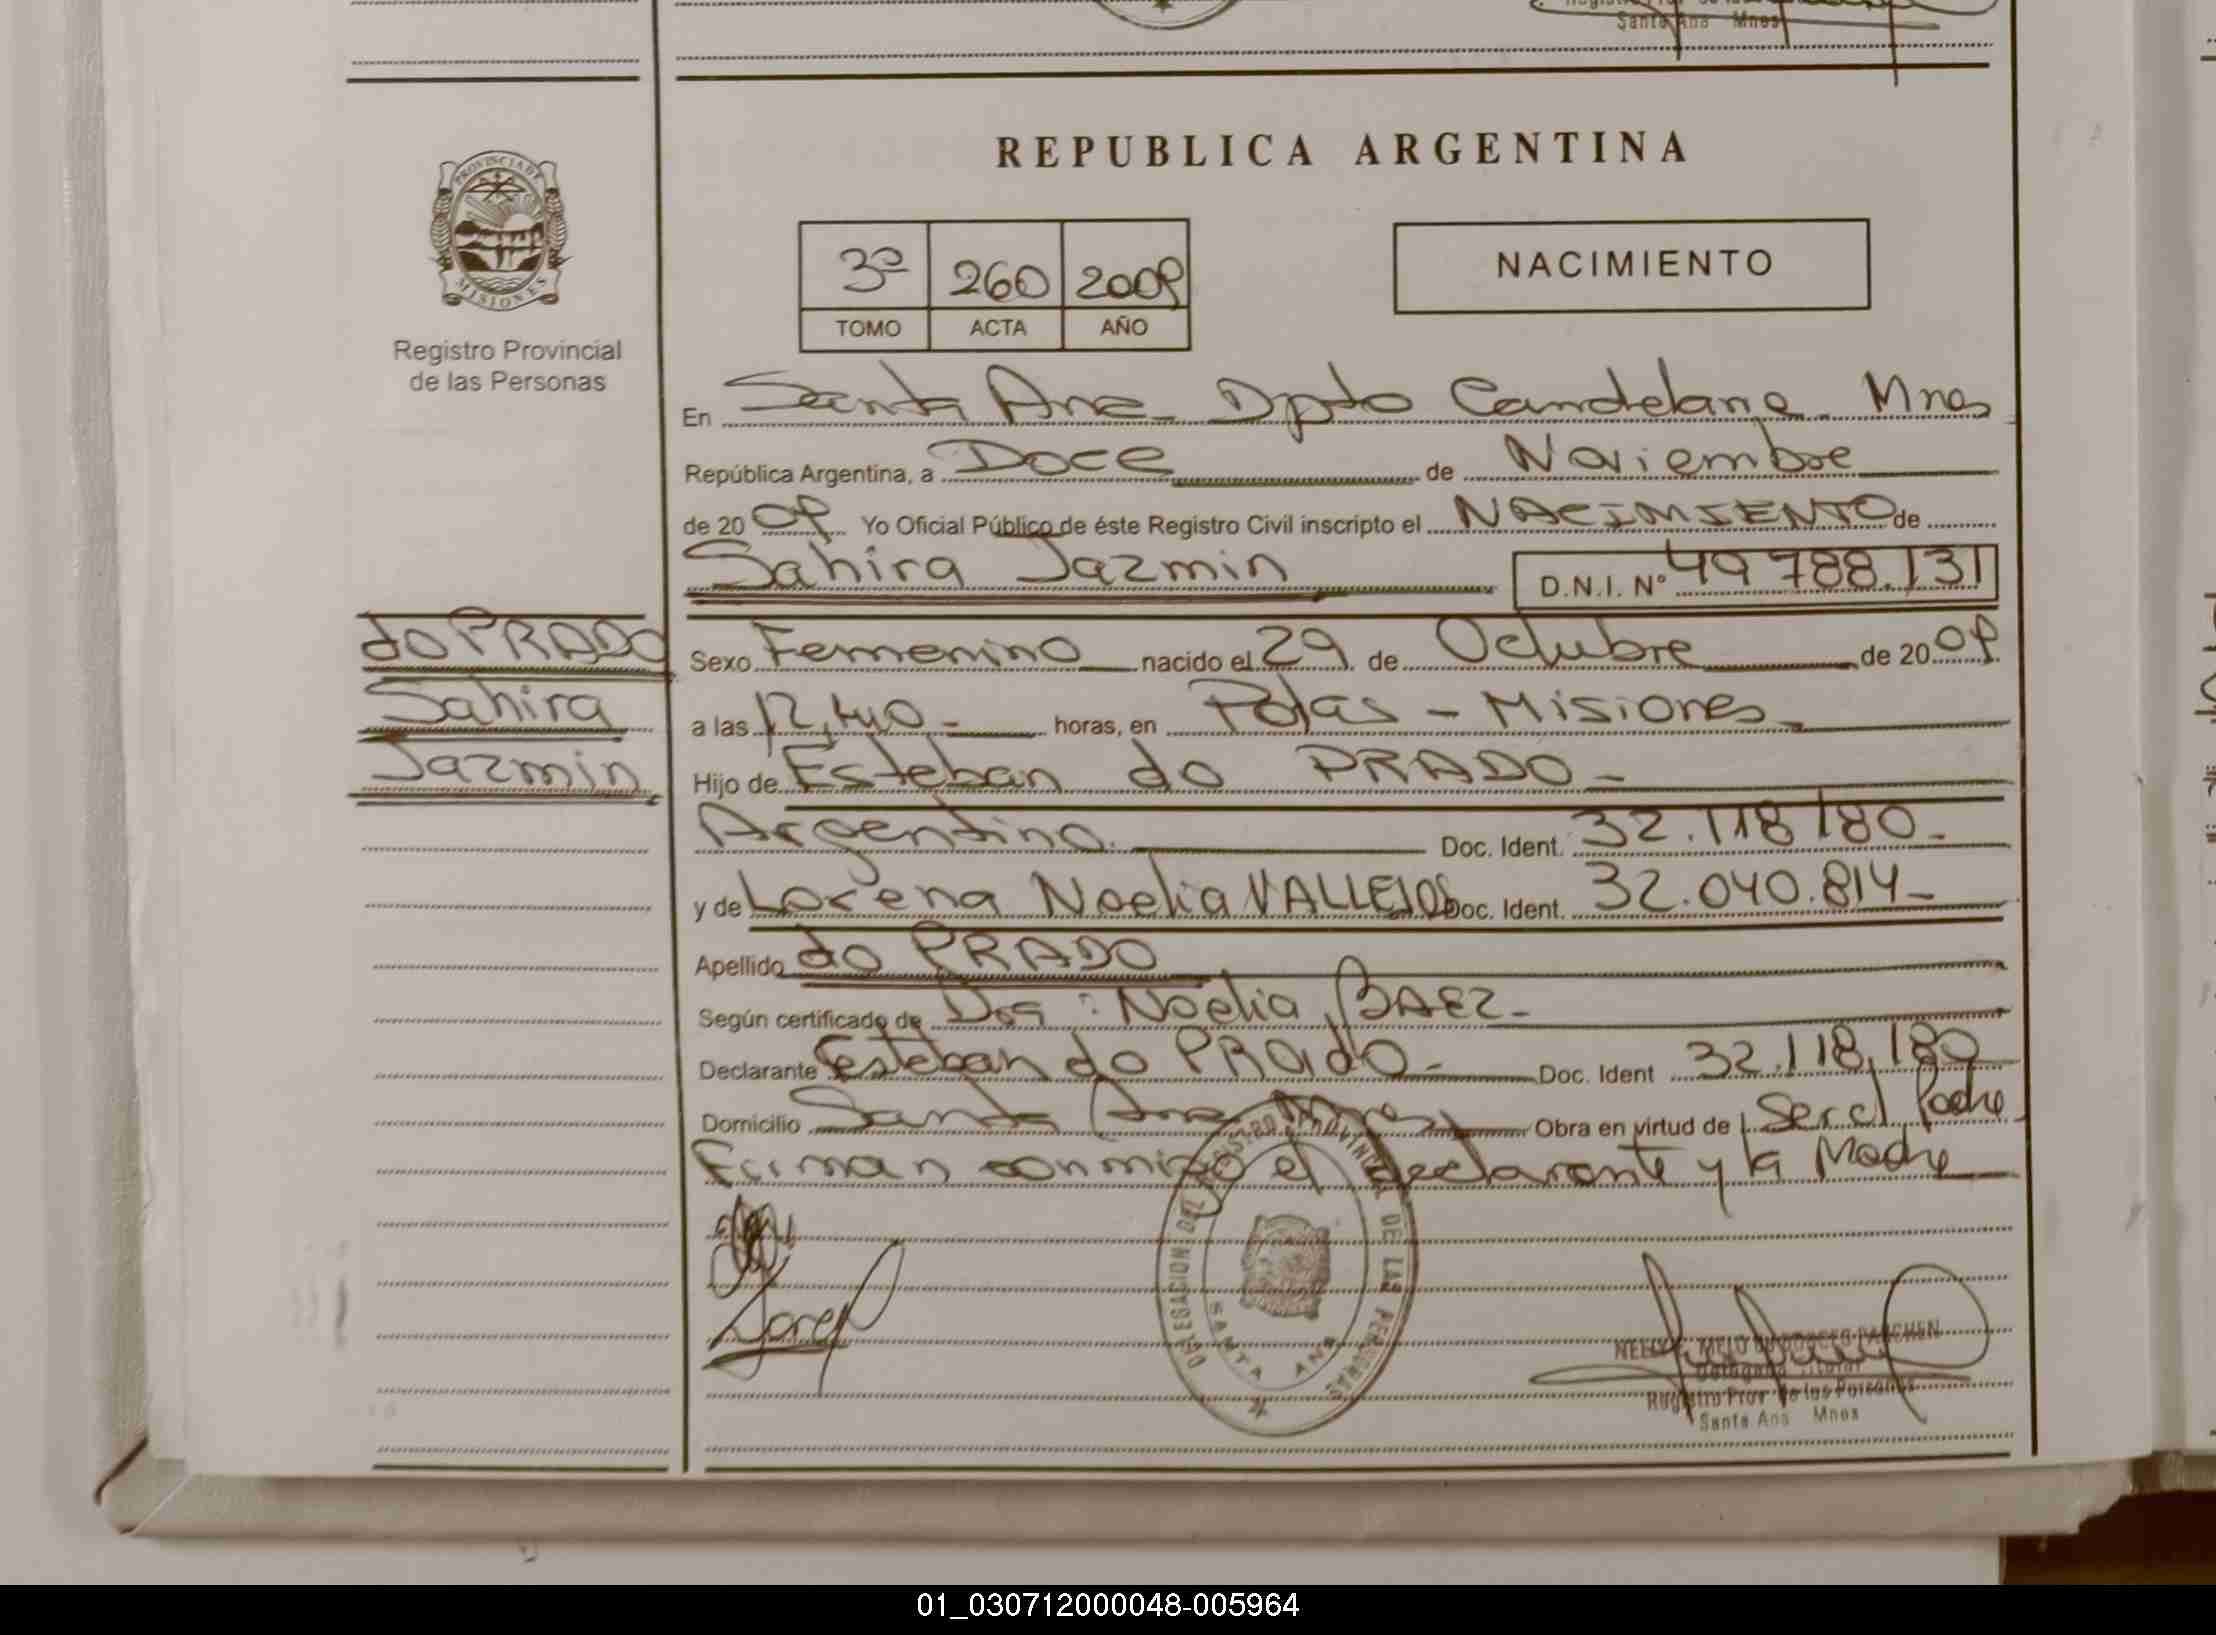 Santa Ana Mnes
REPUBLICA ARGENTINA
PROVINCIA DE
MISIONES
Registro Provincial
de las Personas
3º 260 2009
TOMO ACTA AÑO
NACIMIENTO
En Santa Ana Dpto Candelaria Mnes
República Argentina, a Doce de Noviembre
de 2009 Yo Oficial Público de éste Registro Civil inscripto el NACIMIENTO de
Sahira Jazmin D.N.I. Nº 49788.131
do PRADO
Sahira
Jazmin
Sexo Femenino nacido el 29 de Octubre de 2009
a las 12,40 horas, en Pdas - Misiones
Hijo de Esteban do PRADO
Argentino Doc. Ident. 32.118180
y de Lorena Noelia VALLEJOS Doc. Ident. 32.040.814
Apellido do PRADO
Según certificado de Dra: Noelia BAEZ
Declarante Esteban do PRAdO Doc. Ident 32.118.180
Domicilio Santa Ana Mnes Obra en virtud de Ser el Padre
Firman conmigo el declarante y la Madre
DELEGACION DEL REGISTRO PROVINCIAL DE LAS PERSONAS
SANTA ANA
Delegada Titular
Registro Prov de las Personas
Santa Ana Mnes
01_030712000048-005964